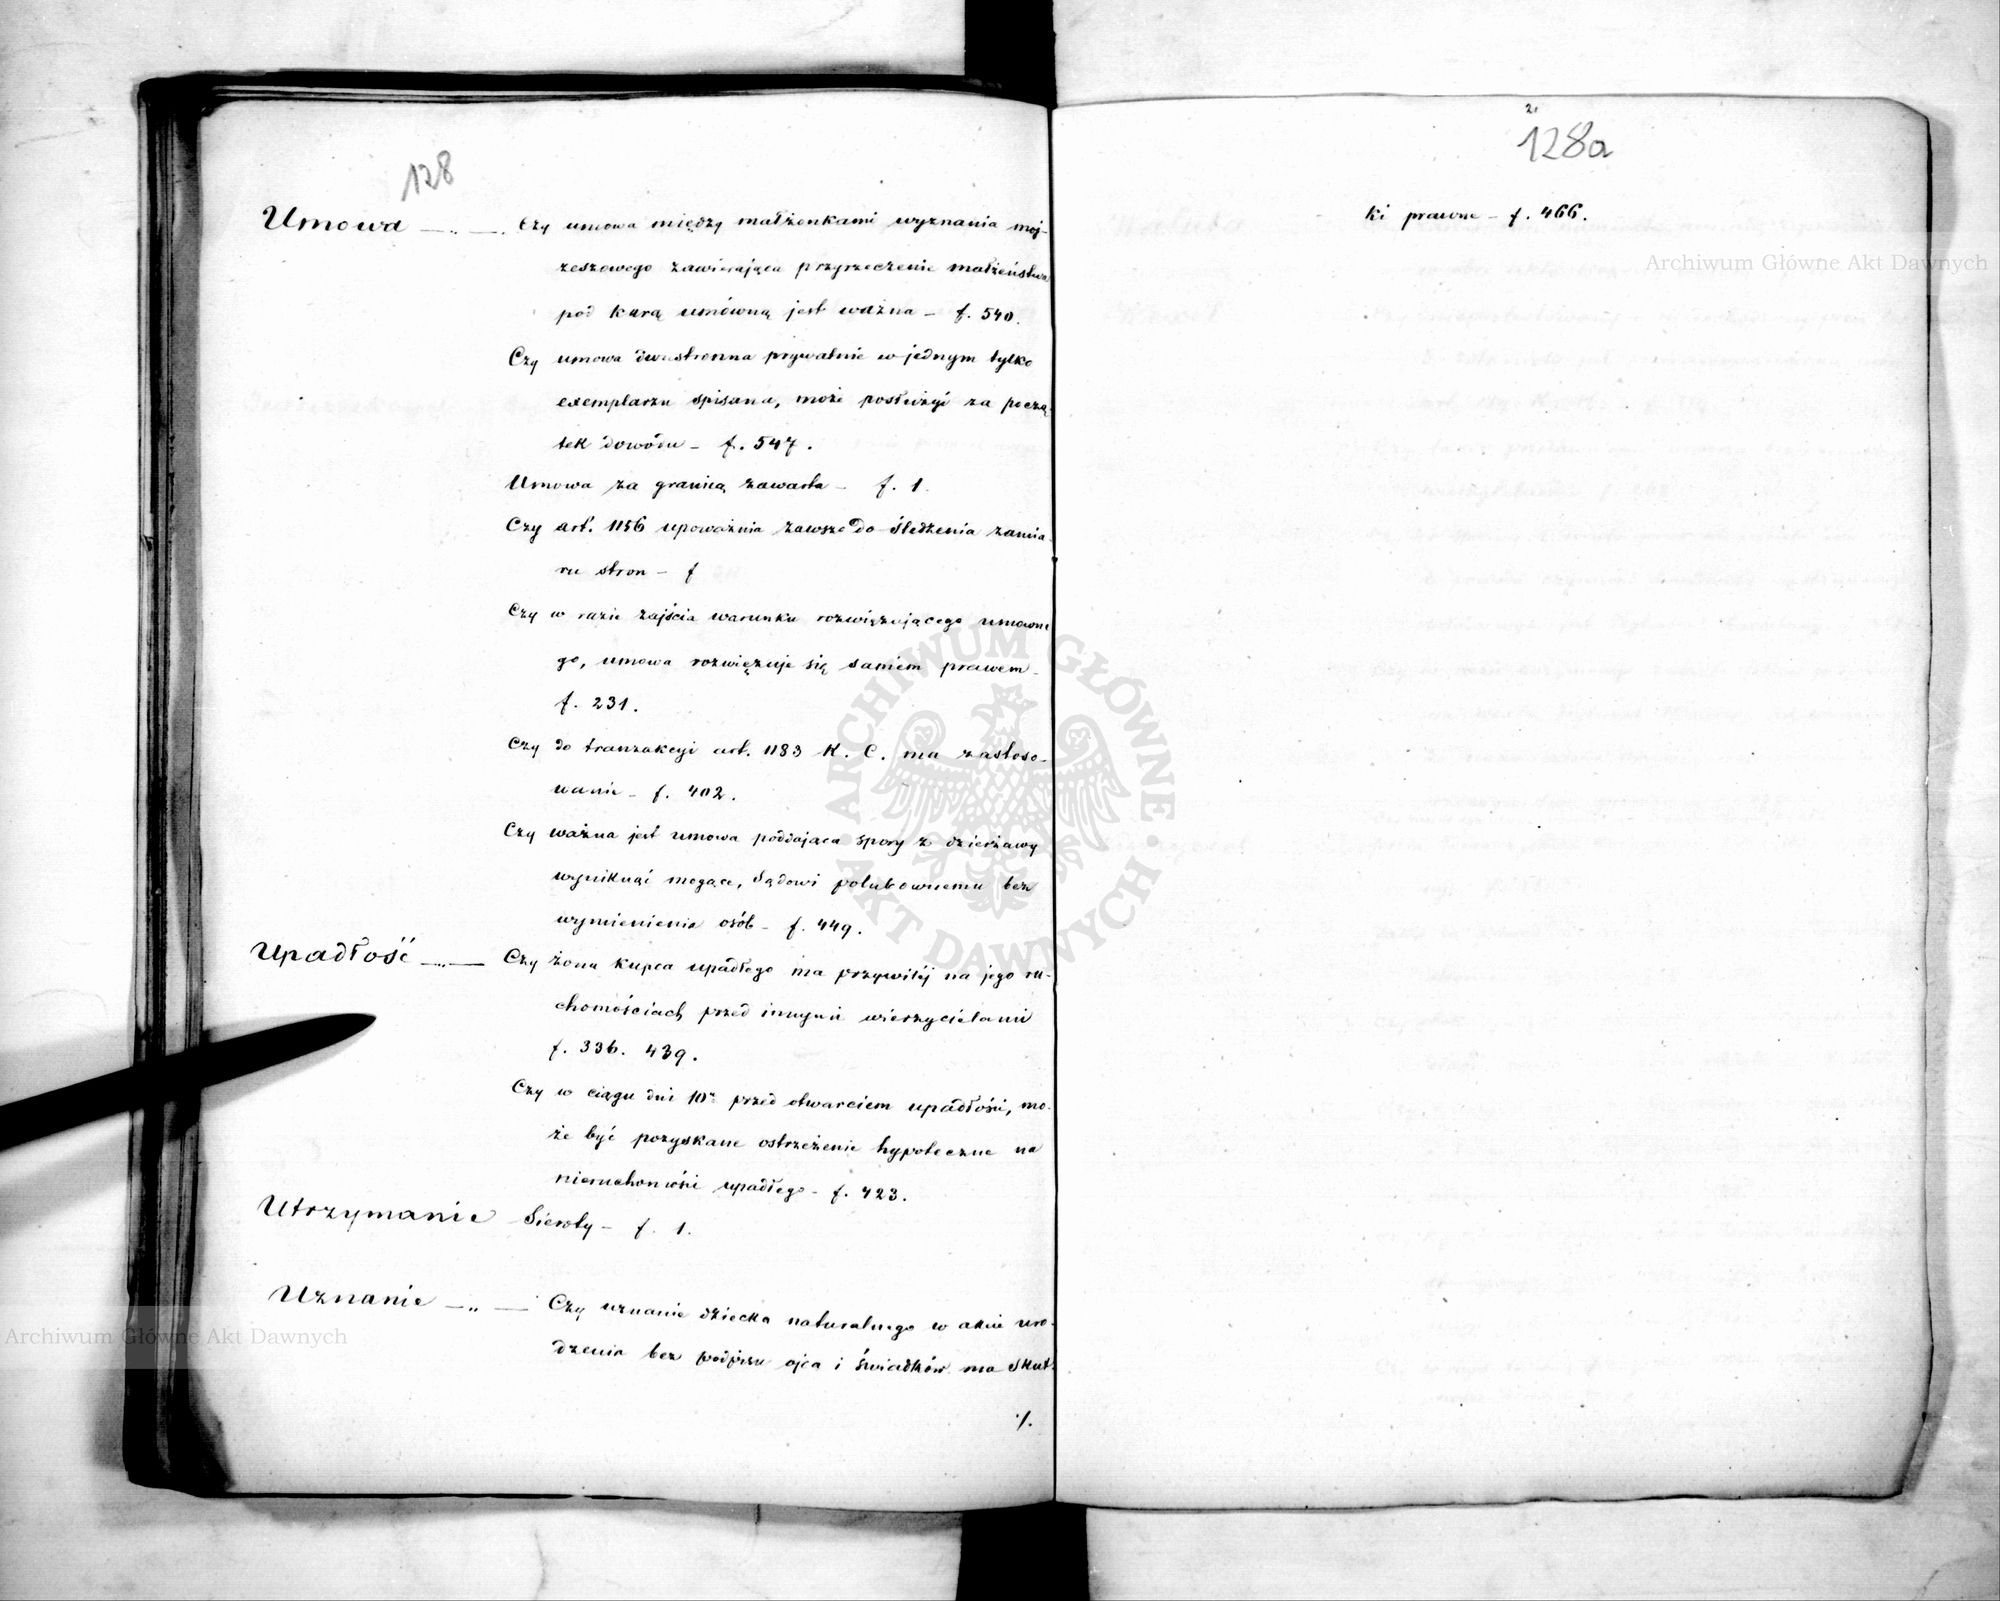 128
Umowa — „ — Czy umowa między małżonkami wyznania moj-
żeszowego zawierająca przyrzeczenie małżeństwa
pod karą umówną jest ważna – f. 540.
Czy umowa dwustronna prywatnie w jednym tylko
exemplarzu spisana, może posłużyć za począ-
tek dowodu – f. 547.
Umowa za granicą zawarta – f. 1.
Czy art. 1156 upoważnia zawsze do śledzenia zamia-
ru stron – f
Czy w razie zajścia warunku rozwiązującego umowne
go, umowa rozwięzuje się samem prawem –
f. 231.
Czy do tranzakcyi art. 1183 K. C. ma zastoso-
wanie – f. 402.
Czy ważna jest umowa poddająca spory z dzierżawy
wyniknąć mogące, Sądowi polubownemu bez
wymienienia osób – f. 449.
Upadłość — „ — Czy żona kupca upadłego ma przywilej na jego ru-
chomościach przed innymi wierzycielami
f. 336. 439.
Czy w ciągu dni 10 przed otwarciem upadłości, mo-
że być pozyskane ostrzeżenie hypoteczne na
nieruchomości upadłego – f. 423.
Utrzymanie Sieroty – f. 1.
Uznanie — „ — Czy uznanie dziecka naturalnego w akcie uro-
dzenia bez podpisu ojca i świadków ma skut-
·/.
128a
ki prawne – f. 466.
Archiwum Główne Akt Dawnych
ARCHIWUM GŁÓWNE · AKT DAWNYCH ·
Archiwum Główne Akt Dawnych